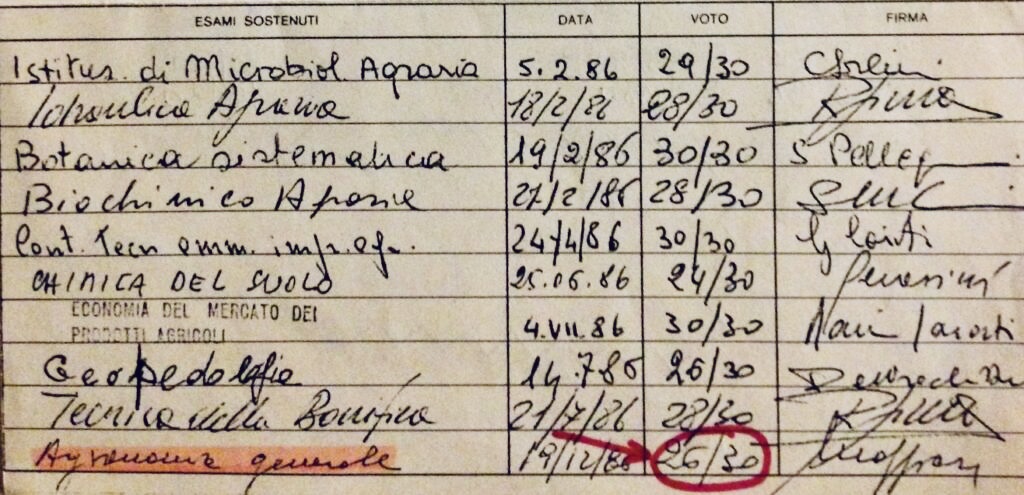 ESAMI SOSTENUTI DATA VOTO FIRMA
Istituz. di Microbiol. Agraria 5.2.86 29/30
Idraulica Agraria 18/2/86 28/30
Botanica sistematica 19/2/86 30/30 S Pelleg
Biochimica Agraria 27/2/86 28/30
Cont. Tecn amm. imp. ag. 24/4/86 30/30
CHIMICA DEL SUOLO 25.06.86 24/30
ECONOMIA DEL MERCATO DEI
PRODOTTI AGRICOLI 4.VII.86 30/30
Geopedologia 14.7.86 26/30
Tecnica della Bonifica 21/7/86 28/30
Agronomia generale 19/12/86 26/30